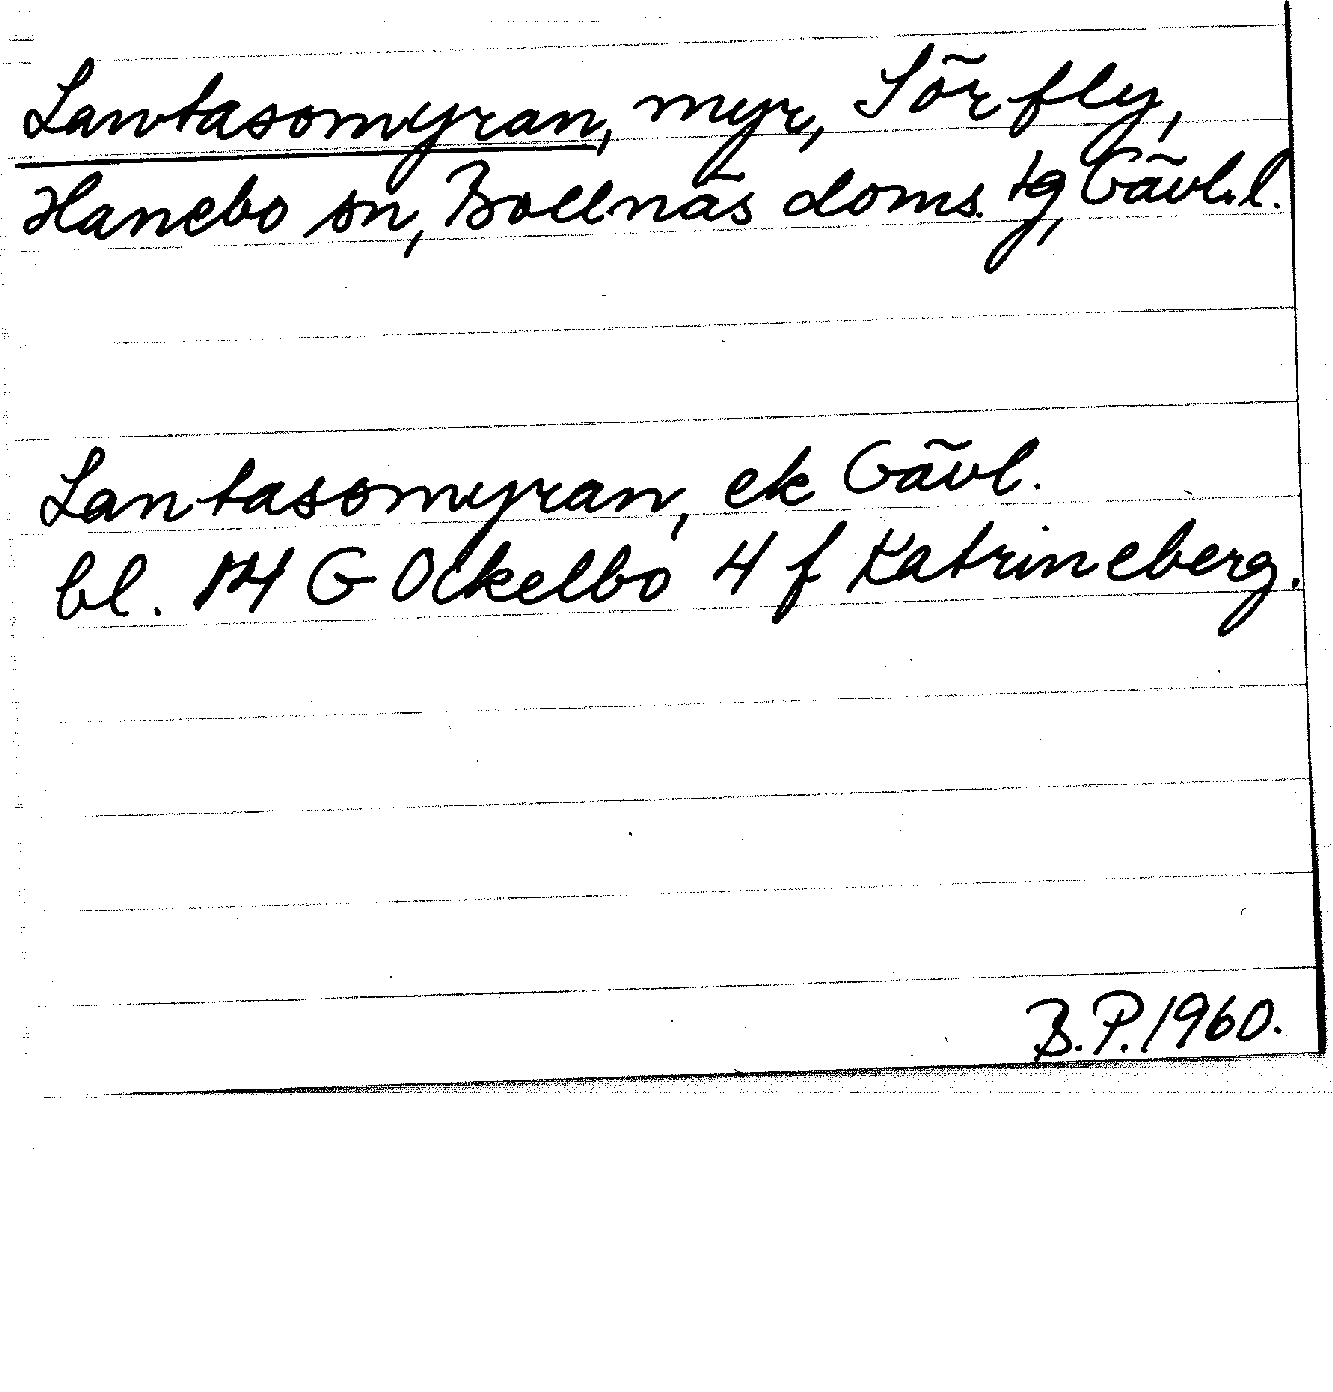 Lantasomyran, myr, Sörfly,
Hanebo sn, Bollnäs doms. tg, Gävl.l.
Lantasomyran, ek Gävl.
bl. 114 G Ockelbo 4 f Katrineberg.
B.P. 1960.